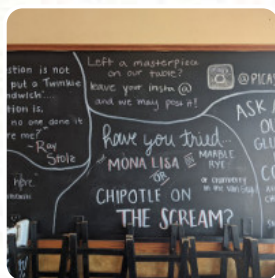 stion is not
put a Twinkie
ndwich...
tion is,
no one done it
re me?"
~Ray
Stolz
Left a masterpiece
on our table?
leave your insta @
and we may post it!
@PICAS
ASK
OU
GLU
have you tried...
MONA LISA
MARBLE
RYE
OR
CHIPOTLE ON
THE SCREAM?
or cranberry